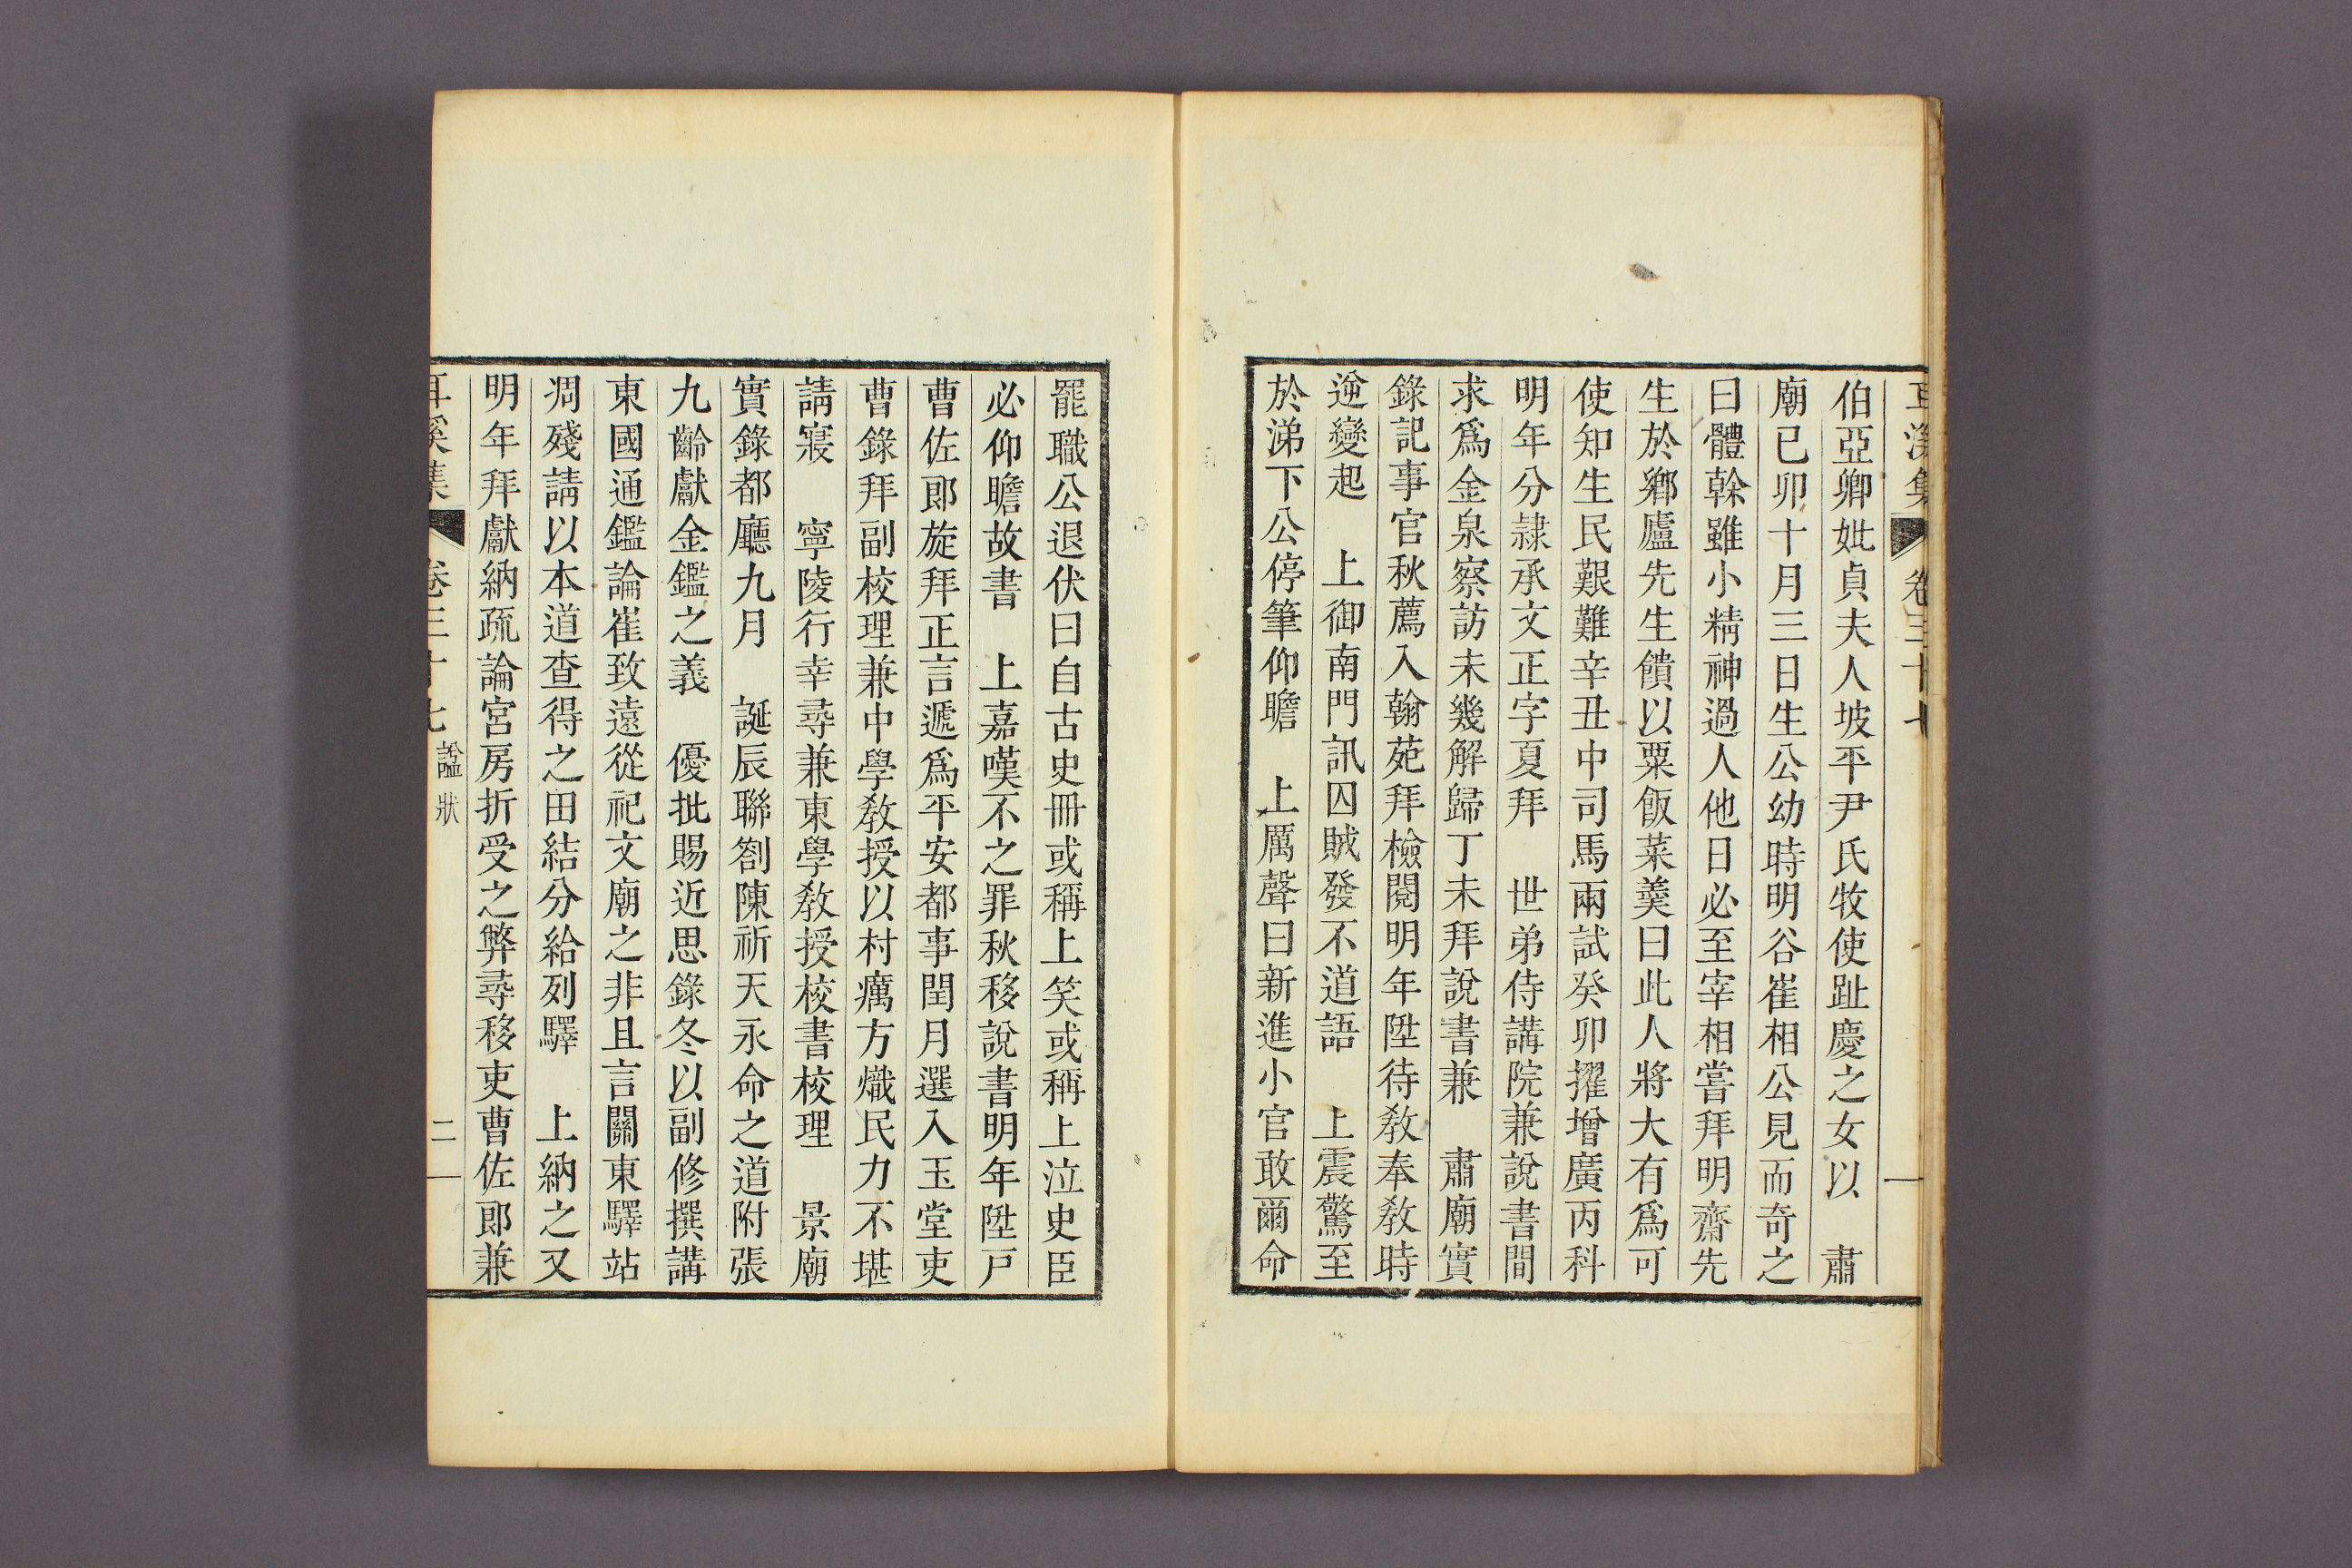 耳溪集 卷三十七 一
伯亞卿妣貞夫人坡平尹氏牧使趾慶之女以　肅
廟己卯十月三日生公幼時明谷崔相公見而奇之
曰體榦雖小精神過人他日必至宰相嘗拜明齋先
生於鄉廬先生饋以粟飯菜羹曰此人將大有爲可
使知生民艱難辛丑中司馬兩試癸卯擢增廣丙科
明年分隷承文正字夏拜　世弟侍講院兼說書間
求爲金泉察訪未幾解歸丁未拜說書兼　肅廟實
錄記事官秋薦入翰苑拜檢閱明年陞待敎奉敎時
逆變起　上御南門訊囚賊發不道語　上震驚至
於涕下公停筆仰瞻　上厲聲曰新進小官敢爾命
罷職公退伏曰自古史冊或稱上笑或稱上泣史臣
必仰瞻故書　上嘉嘆不之罪秋移說書明年陞戶
曹佐郎旋拜正言遞爲平安都事閏月選入玉堂吏
曹錄拜副校理兼中學敎授以村癘方熾民力不堪
請寢　寧陵行幸尋兼東學敎授校書校理　景廟
實錄都廳九月　誕辰聯劄陳祈天永命之道附張
九齡獻金鑑之義　優批賜近思錄冬以副修撰講
東國通鑑論崔致遠從祀文廟之非且言關東驛站
凋殘請以本道查得之田結分給列驛　上納之又
明年拜獻納疏論宮房折受之弊尋移吏曹佐郎兼
耳溪集 卷三十七 諡狀 二